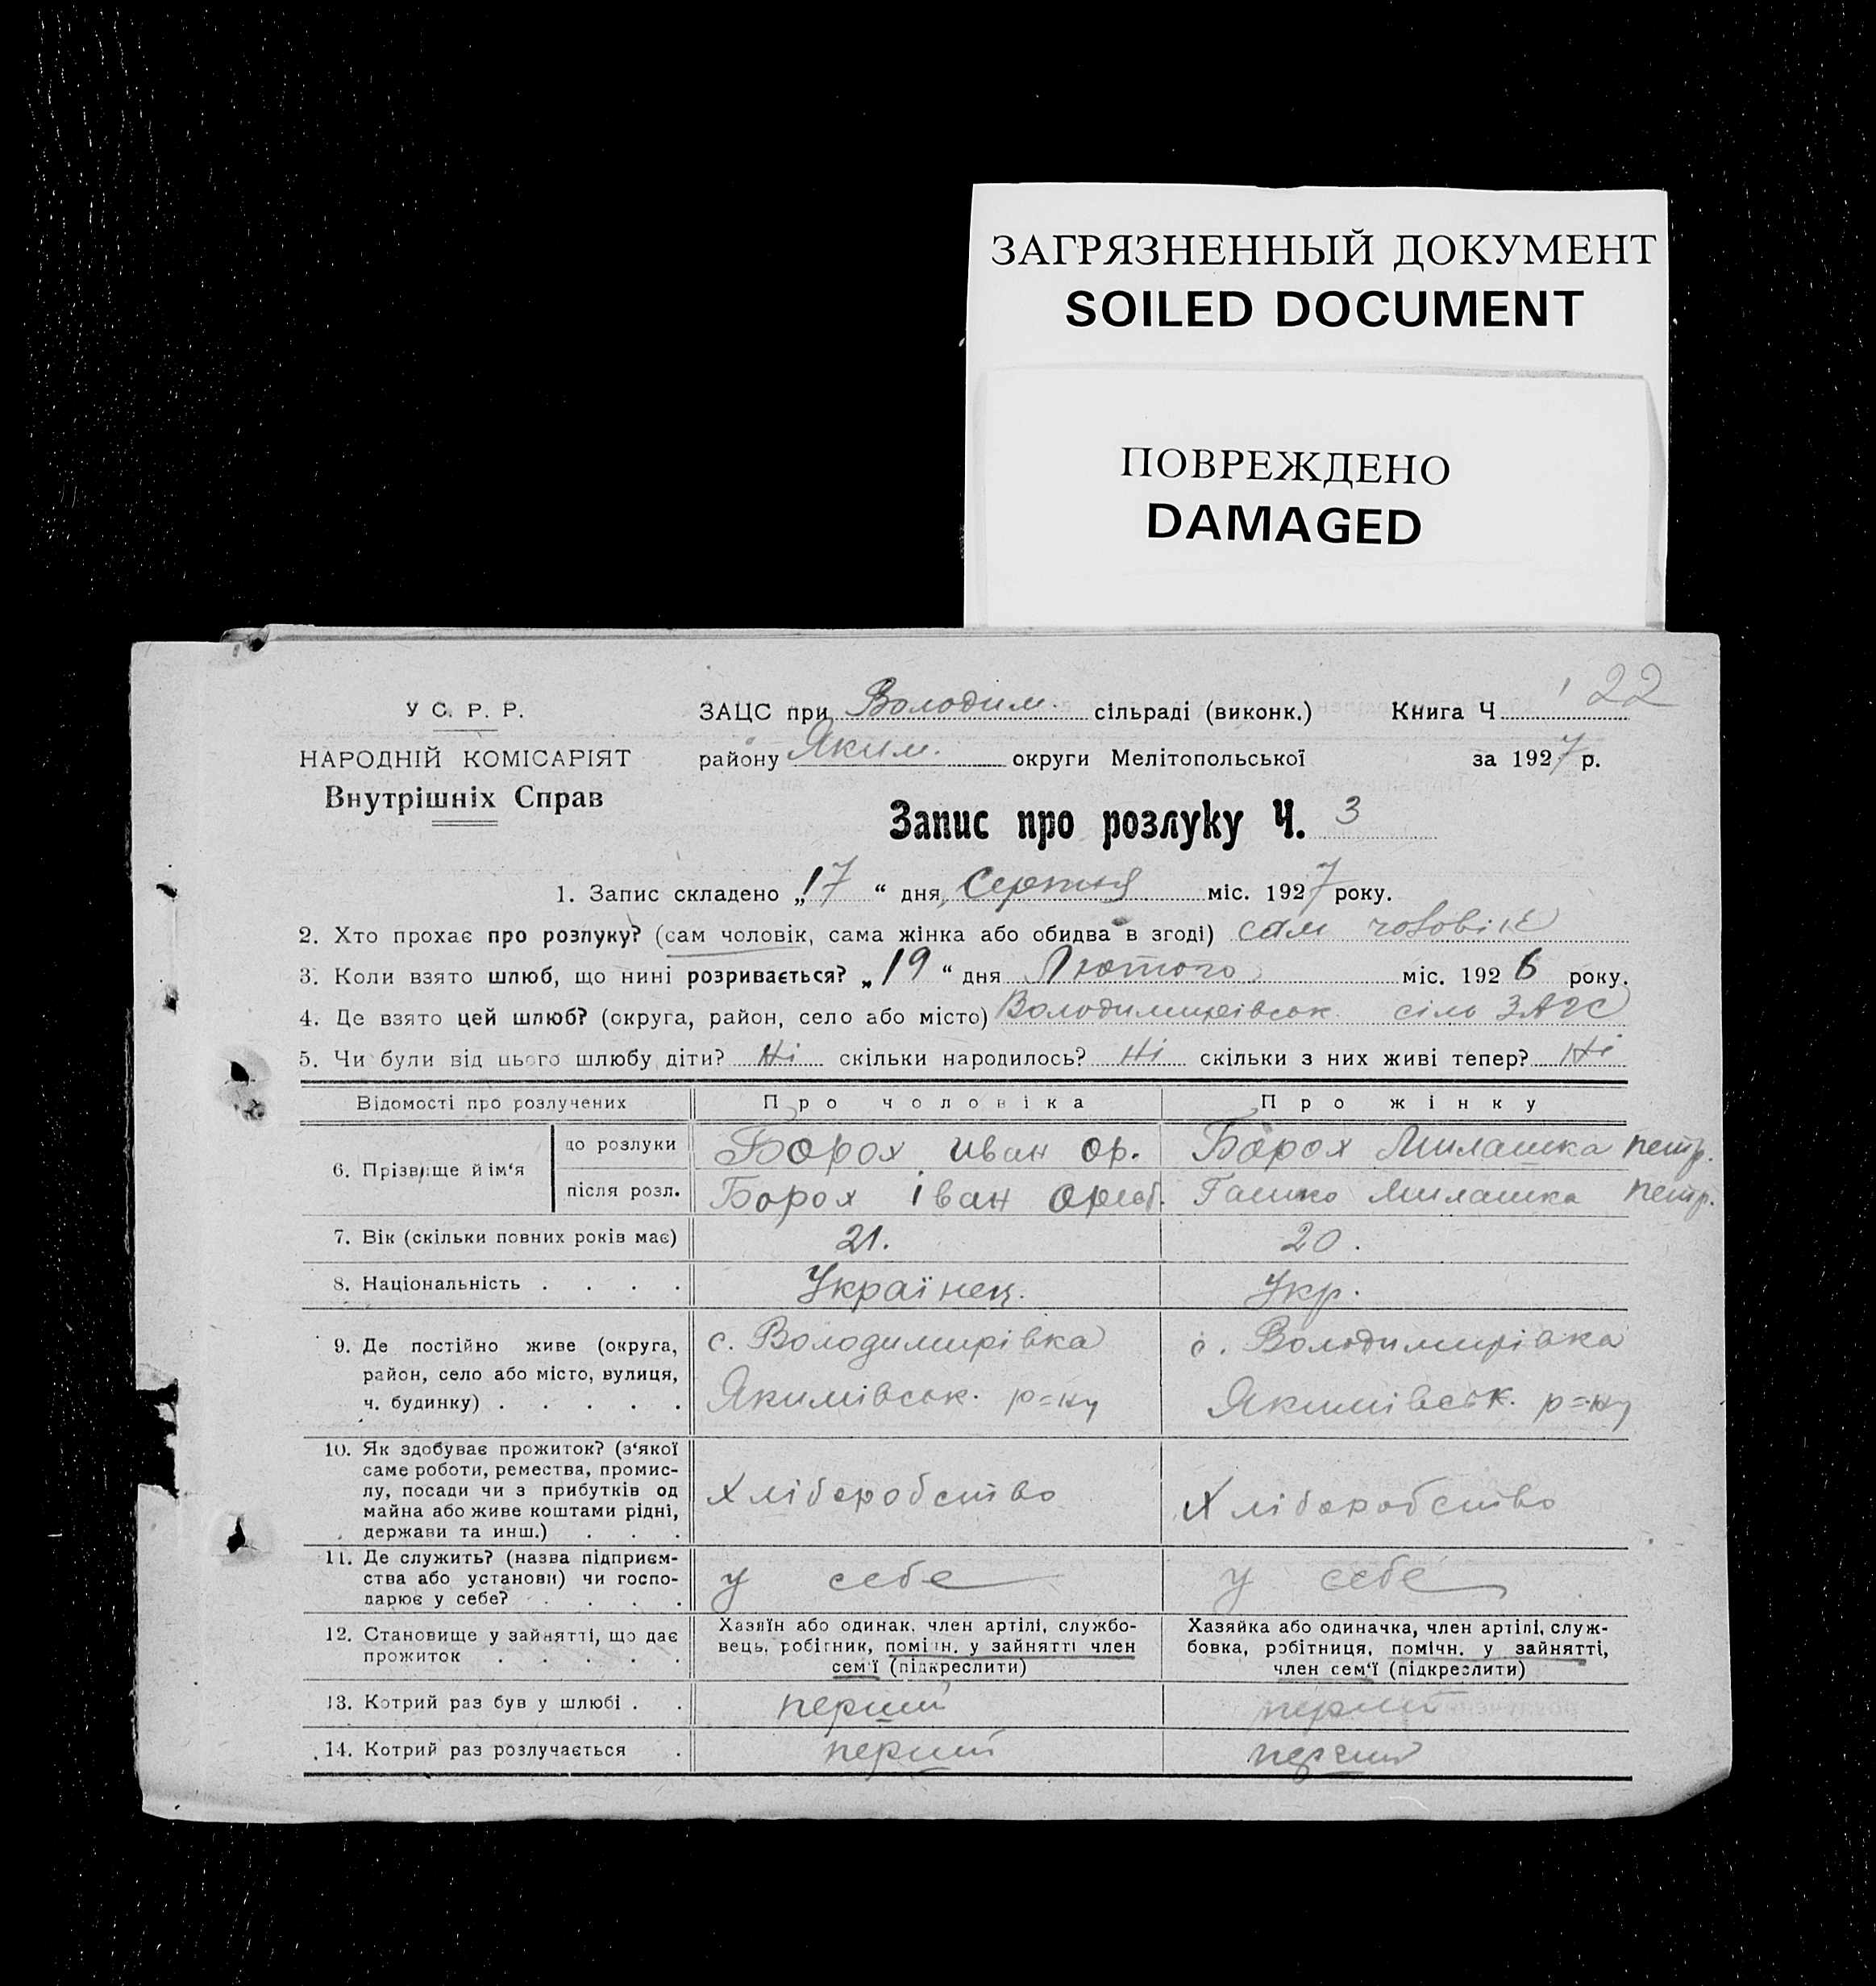 ЗАГРЯЗНЕННЫЙ ДОКУМЕНТ
SOILED DOCUMENT
ПОВРЕЖДЕНО
DAMAGED
22
У С. Р. Р.
НАРОДНІЙ КОМІСАРІЯТ
Внутрішніх Справ
ЗАЦС при Володим. сільраді (виконк.) Книга Ч
району Яким. округи Мелітопольської за 1927 р.
Запис про розлуку Ч. 3
1. Запис складено „17“ дня Серпня міс. 1927 року.
2. Хто прохає про розлуку? (сам чоловік, сама жінка або обидва в згоді) сам чоловік
3. Коли взято шлюб, що нині розривається? „19“ дня Лютого міс. 1926 року.
4. Де взято цей шлюб? (округа, район, село або місто) Володимирівськ сіль ЗАГС
5. Чи були від цього шлюбу діти? Ні скільки народилось? Ні скільки з них живі тепер? Ні
Відомості про розлучених Про чоловіка Про жінку
6. Прізвище й ім‘я
до розлуки Борох иван ор. Борох Милашка петр.
після розл. Борох іван Милашка петр.
7. Вік (скільки повних років має) 21. 20.
8. Національність . . . . Українец. Укр.
9. Де постійно живе (округа,
район, село або місто, вулиця,
ч. будинку) . . . . .
с. Володимирівка
Якимівськ. р=ну
с. Володимирівка
Якимівськ. р=ну
10. Як здобуває прожиток? (з‘якої
саме роботи, ремества, промис-
лу, посади чи з прибутків од
майна або живе коштами рідні,
держави та инш.) . . .
Хліборобство
Хліборобство
11. Де служить? (назва підприєм-
ства або установи) чи госпо-
дарює у себе? . . . .
у себе
у себе
12. Становище у зайнятті, що дає
прожиток . . . . .
Хазяїн або одинак, член артілі, службо-
вець, робітник, помічн. у зайнятті член
сем‘ї (підкреслити)
Хазяйка або одиначка, член артілі, служ-
бовка, робітниця, помічн. у зайнятті,
член сем‘ї (підкреслити)
13. Котрий раз був у шлюбі . . перший перший
14. Котрий раз розлучається . перший перший